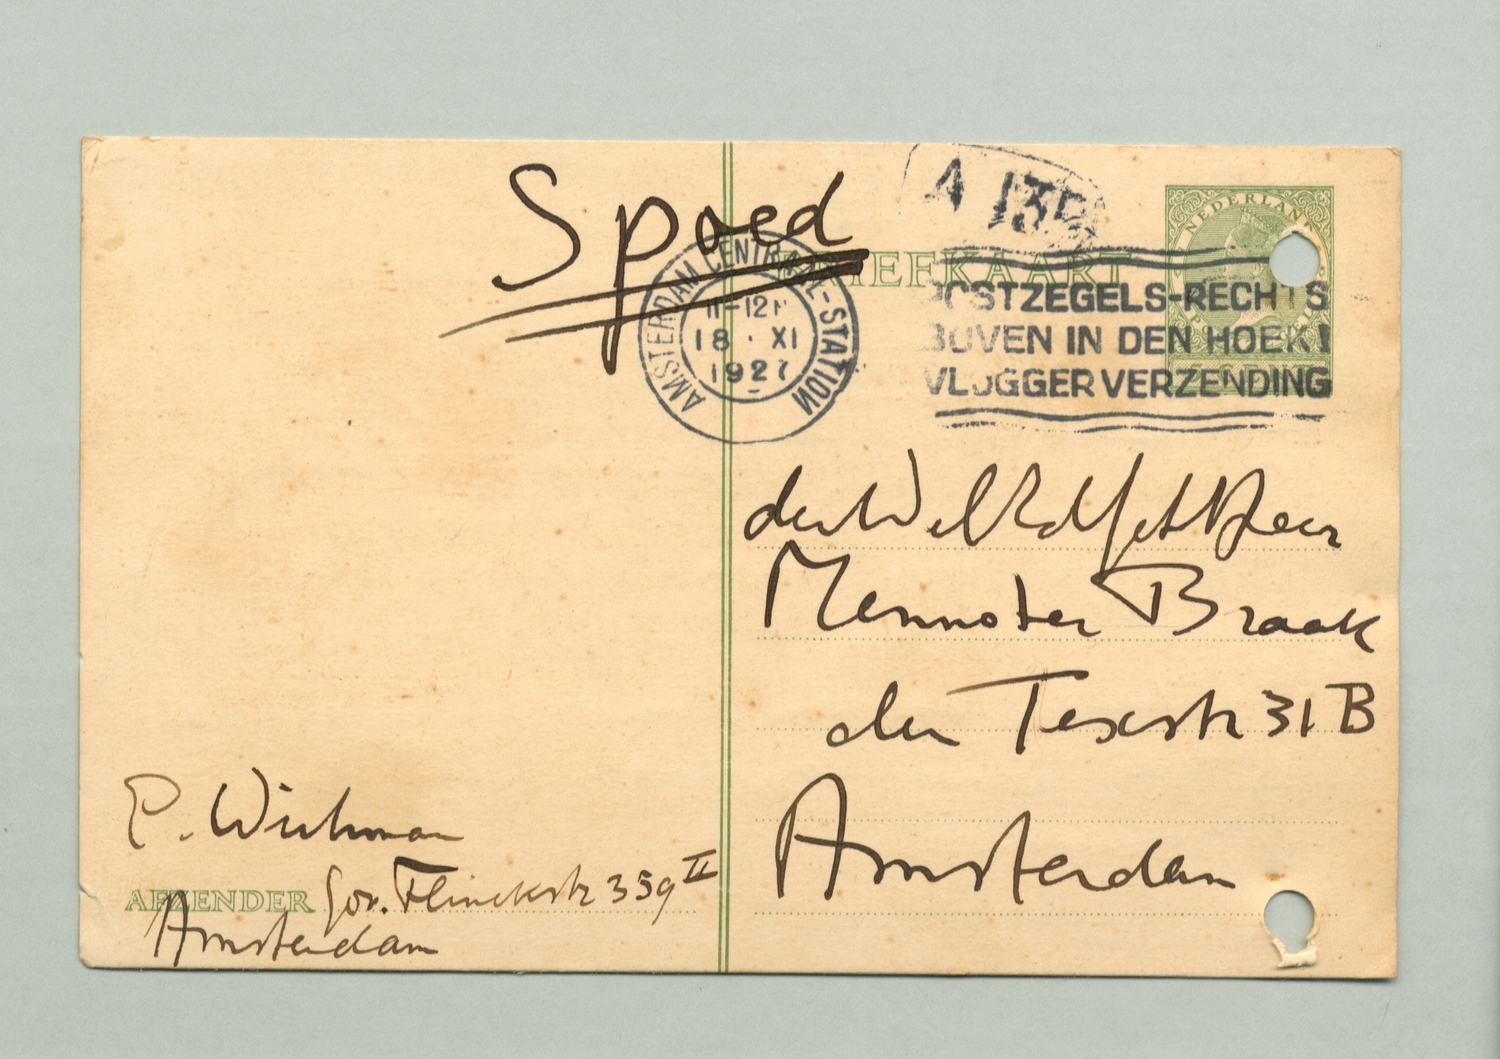 Spoed
A 13
BRIEFKAART
NEDERLAND
AMSTERDAM CENTRAAL-STATION
11-12
18 · XI
1927
POSTZEGELS-RECHTS
BOVEN IN DEN HOEK!
VLUGGER VERZENDING
den Wel Ed Geb Heer
Menno ter Braak
den Texstr 31 B
Amsterdam
P. Wichman
AFZENDER Gov. Flinckstr 359 II
Amsterdam